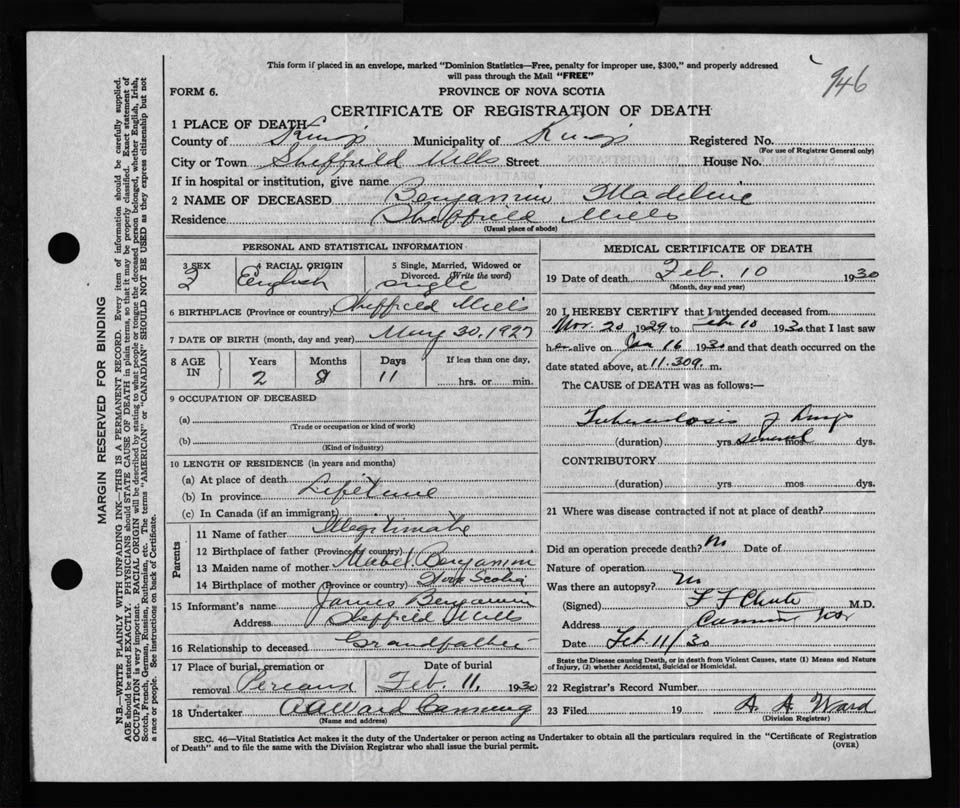 This form if placed in an envelope, marked "Dominion Statistics—Free, penalty for improper use, $300," and properly addressed
will pass through the Mail "FREE"
946
FORM 6.
PROVINCE OF NOVA SCOTIA
CERTIFICATE OF REGISTRATION OF DEATH
1 PLACE OF DEATH
County of Kings Municipality of Kings Registered No.
(For use of Registrar General only)
City or Town Sheffield Mills Street House No.
If in hospital or institution, give name
2 NAME OF DECEASED Benjamin Madeline
Residence Sheffield Mills
(Usual place of abode)
PERSONAL AND STATISTICAL INFORMATION
3 SEX 4 RACIAL ORIGIN 5 Single, Married, Widowed or
Divorced. (Write the word)
English Single
6 BIRTHPLACE (Province or country) Sheffield Mills
7 DATE OF BIRTH (month, day and year) May 30, 1927
8 AGE IN Years Months Days If less than one day,
2 8 11 hrs. or min.
9 OCCUPATION OF DECEASED
(a)
(Trade or occupation or kind of work)
(b)
(Kind of industry)
10 LENGTH OF RESIDENCE (in years and months)
(a) At place of death
(b) In province Lifetime
(c) In Canada (if an immigrant)
Parents
11 Name of father Illegitimate
12 Birthplace of father (Province or country)
13 Maiden name of mother Mabel Benjamin
14 Birthplace of mother (Province or country) Nova Scotia
15 Informant's name James Benjamin
Address Sheffield Mills
16 Relationship to deceased Grandfather
17 Place of burial, cremation or Date of burial
removal Pereaux Feb. 11, 1930
18 Undertaker A A Ward Canning
(Name and address)
MEDICAL CERTIFICATE OF DEATH
19 Date of death Feb. 10 1930
(Month, day and year)
20 I HEREBY CERTIFY that I attended deceased from
Nov. 20 1929 to Feb 10 1930 that I last saw
her alive on Jan 16 1930 and that death occurred on the
date stated above, at 11.30 m.
The CAUSE of DEATH was as follows:—
Tuberculosis of Lungs
(duration) yrs. several mos. dys.
CONTRIBUTORY
(duration) yrs. mos. dys.
21 Where was disease contracted if not at place of death?
Did an operation precede death? No Date of
Nature of operation
Was there an autopsy? No
(Signed) F F Chute M.D.
Address Canning
Date Feb. 11/30
State the Disease causing Death, or in death from Violent Causes, state (1) Means and Nature
of Injury, (2) whether Accidental, Suicidal or Homicidal.
22 Registrar's Record Number
23 Filed 19 A. A. Ward
(Division Registrar)
SEC. 46—Vital Statistics Act makes it the duty of the Undertaker or person acting as Undertaker to obtain all the particulars required in the "Certificate of Registration
of Death" and to file the same with the Division Registrar who shall issue the burial permit.
(OVER)
MARGIN RESERVED FOR BINDING
N.B.—WRITE PLAINLY WITH UNFADING INK—THIS IS A PERMANENT RECORD. Every item of information should be carefully supplied.
AGE should be stated EXACTLY. PHYSICIANS should STATE CAUSE OF DEATH in plain terms, so that it may be properly classified. Exact statement of
OCCUPATION is very important. RACIAL ORIGIN will be described by stating to what people or tongue the deceased person belonged, whether English, Irish,
Scotch, French, German, Russian, Ruthenian, etc. The terms "AMERICAN" or "CANADIAN" SHOULD NOT BE USED as they express citizenship but not
a race or people. See instructions on back of Certificate.